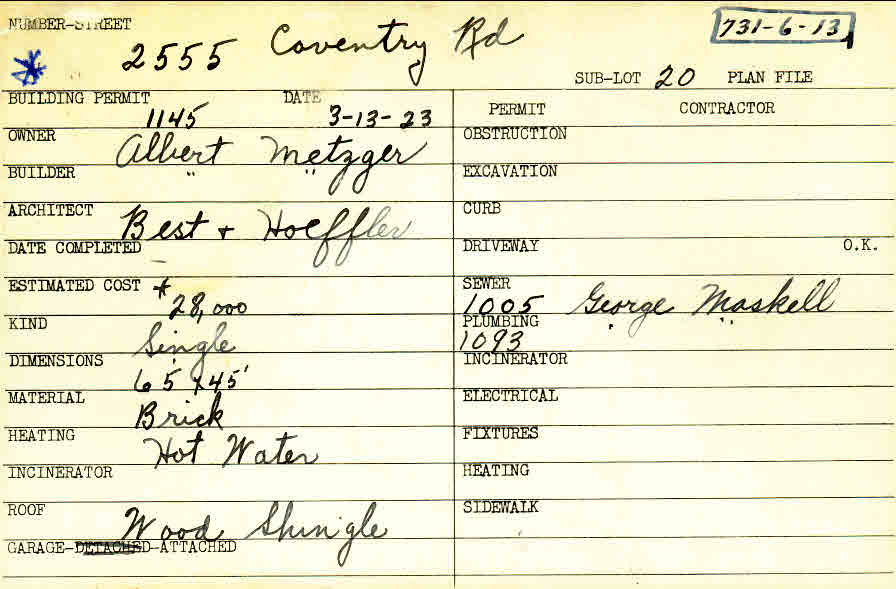 NUMBER-STREET 2555 Coventry Rd 731-6-13
SUB-LOT 20 PLAN FILE
BUILDING PERMIT 1145 DATE 3-13-23
OWNER Albert Metzger
BUILDER " "
ARCHITECT Best + Hoeffler
DATE COMPLETED
ESTIMATED COST 28,000
KIND Single
DIMENSIONS 65 x 45'
MATERIAL Brick
HEATING Hot Water
INCINERATOR
ROOF Wood Shingle
GARAGE-DETACHED-ATTACHED
PERMIT CONTRACTOR
OBSTRUCTION
EXCAVATION
CURB
DRIVEWAY O.K.
SEWER 1005 George Maskell
PLUMBING 1093 " "
INCINERATOR
ELECTRICAL
FIXTURES
HEATING
SIDEWALK